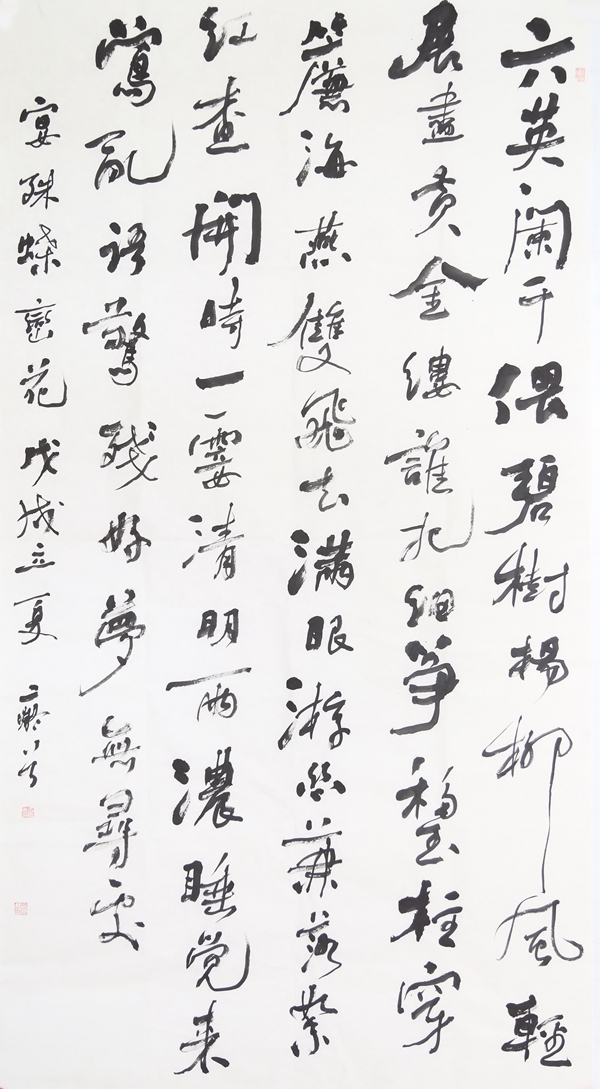 六英闌干偎碧樹楊柳風輕
展盡黃金縷誰把鈿箏移玉柱穿
簾海燕雙飛去滿眼游絲兼落絮
紅杏開時一霎清明雨濃睡覺来
鶯亂語驚殘好夢無尋處
晏殊蝶戀花 戊戌立夏